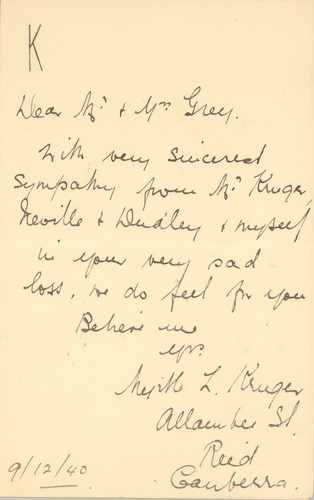 K
Dear Mr & Mrs Grey.
With very sincerest
sympathy from Mr Kruger,
Neville & Dudley & myself
in your very sad
loss, we do feel for you
Believe me
yrs.
Myrtle L. Kruger
Allambee St.
Reid
Canberra.
9/12/40